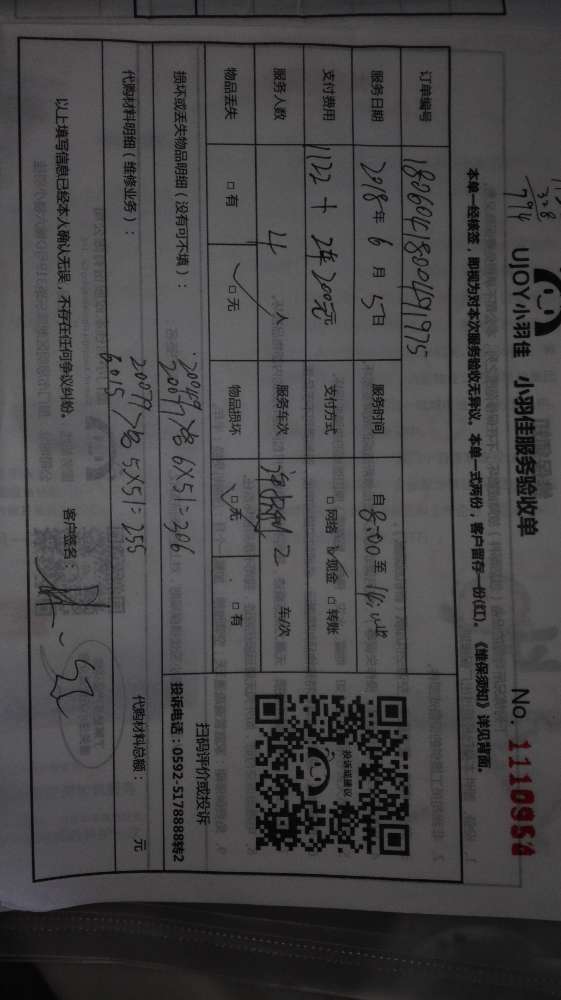 308
794
UJOY小羽佳 小羽佳服务验收单 No. 1110954
本单一经候签，即视为对本次服务验收无异议。本单一式两份，客户留存一份(红)。《维保须知》详见背面。
订单编号 180604180041975
服务日期 2018年6月5日 服务时间 自8:00至
支付费用 1122+ 200元 支付方式 □网络 □现金 □转账
服务人数 4人 服务车次 2 车/次
物品丢失 □有 □无 物品损坏 □无 □有
损坏或丢失物品明细（没有可不填）：
6×51=306
代购材料明细（维修业务）：
5×51=255
6015
代购材料总额： 元
扫码评价或投诉
投诉电话：0592-5178888转2
投诉或建议
以上填写信息已经本人确认无误，不存在任何争议纠纷。 客户签名：